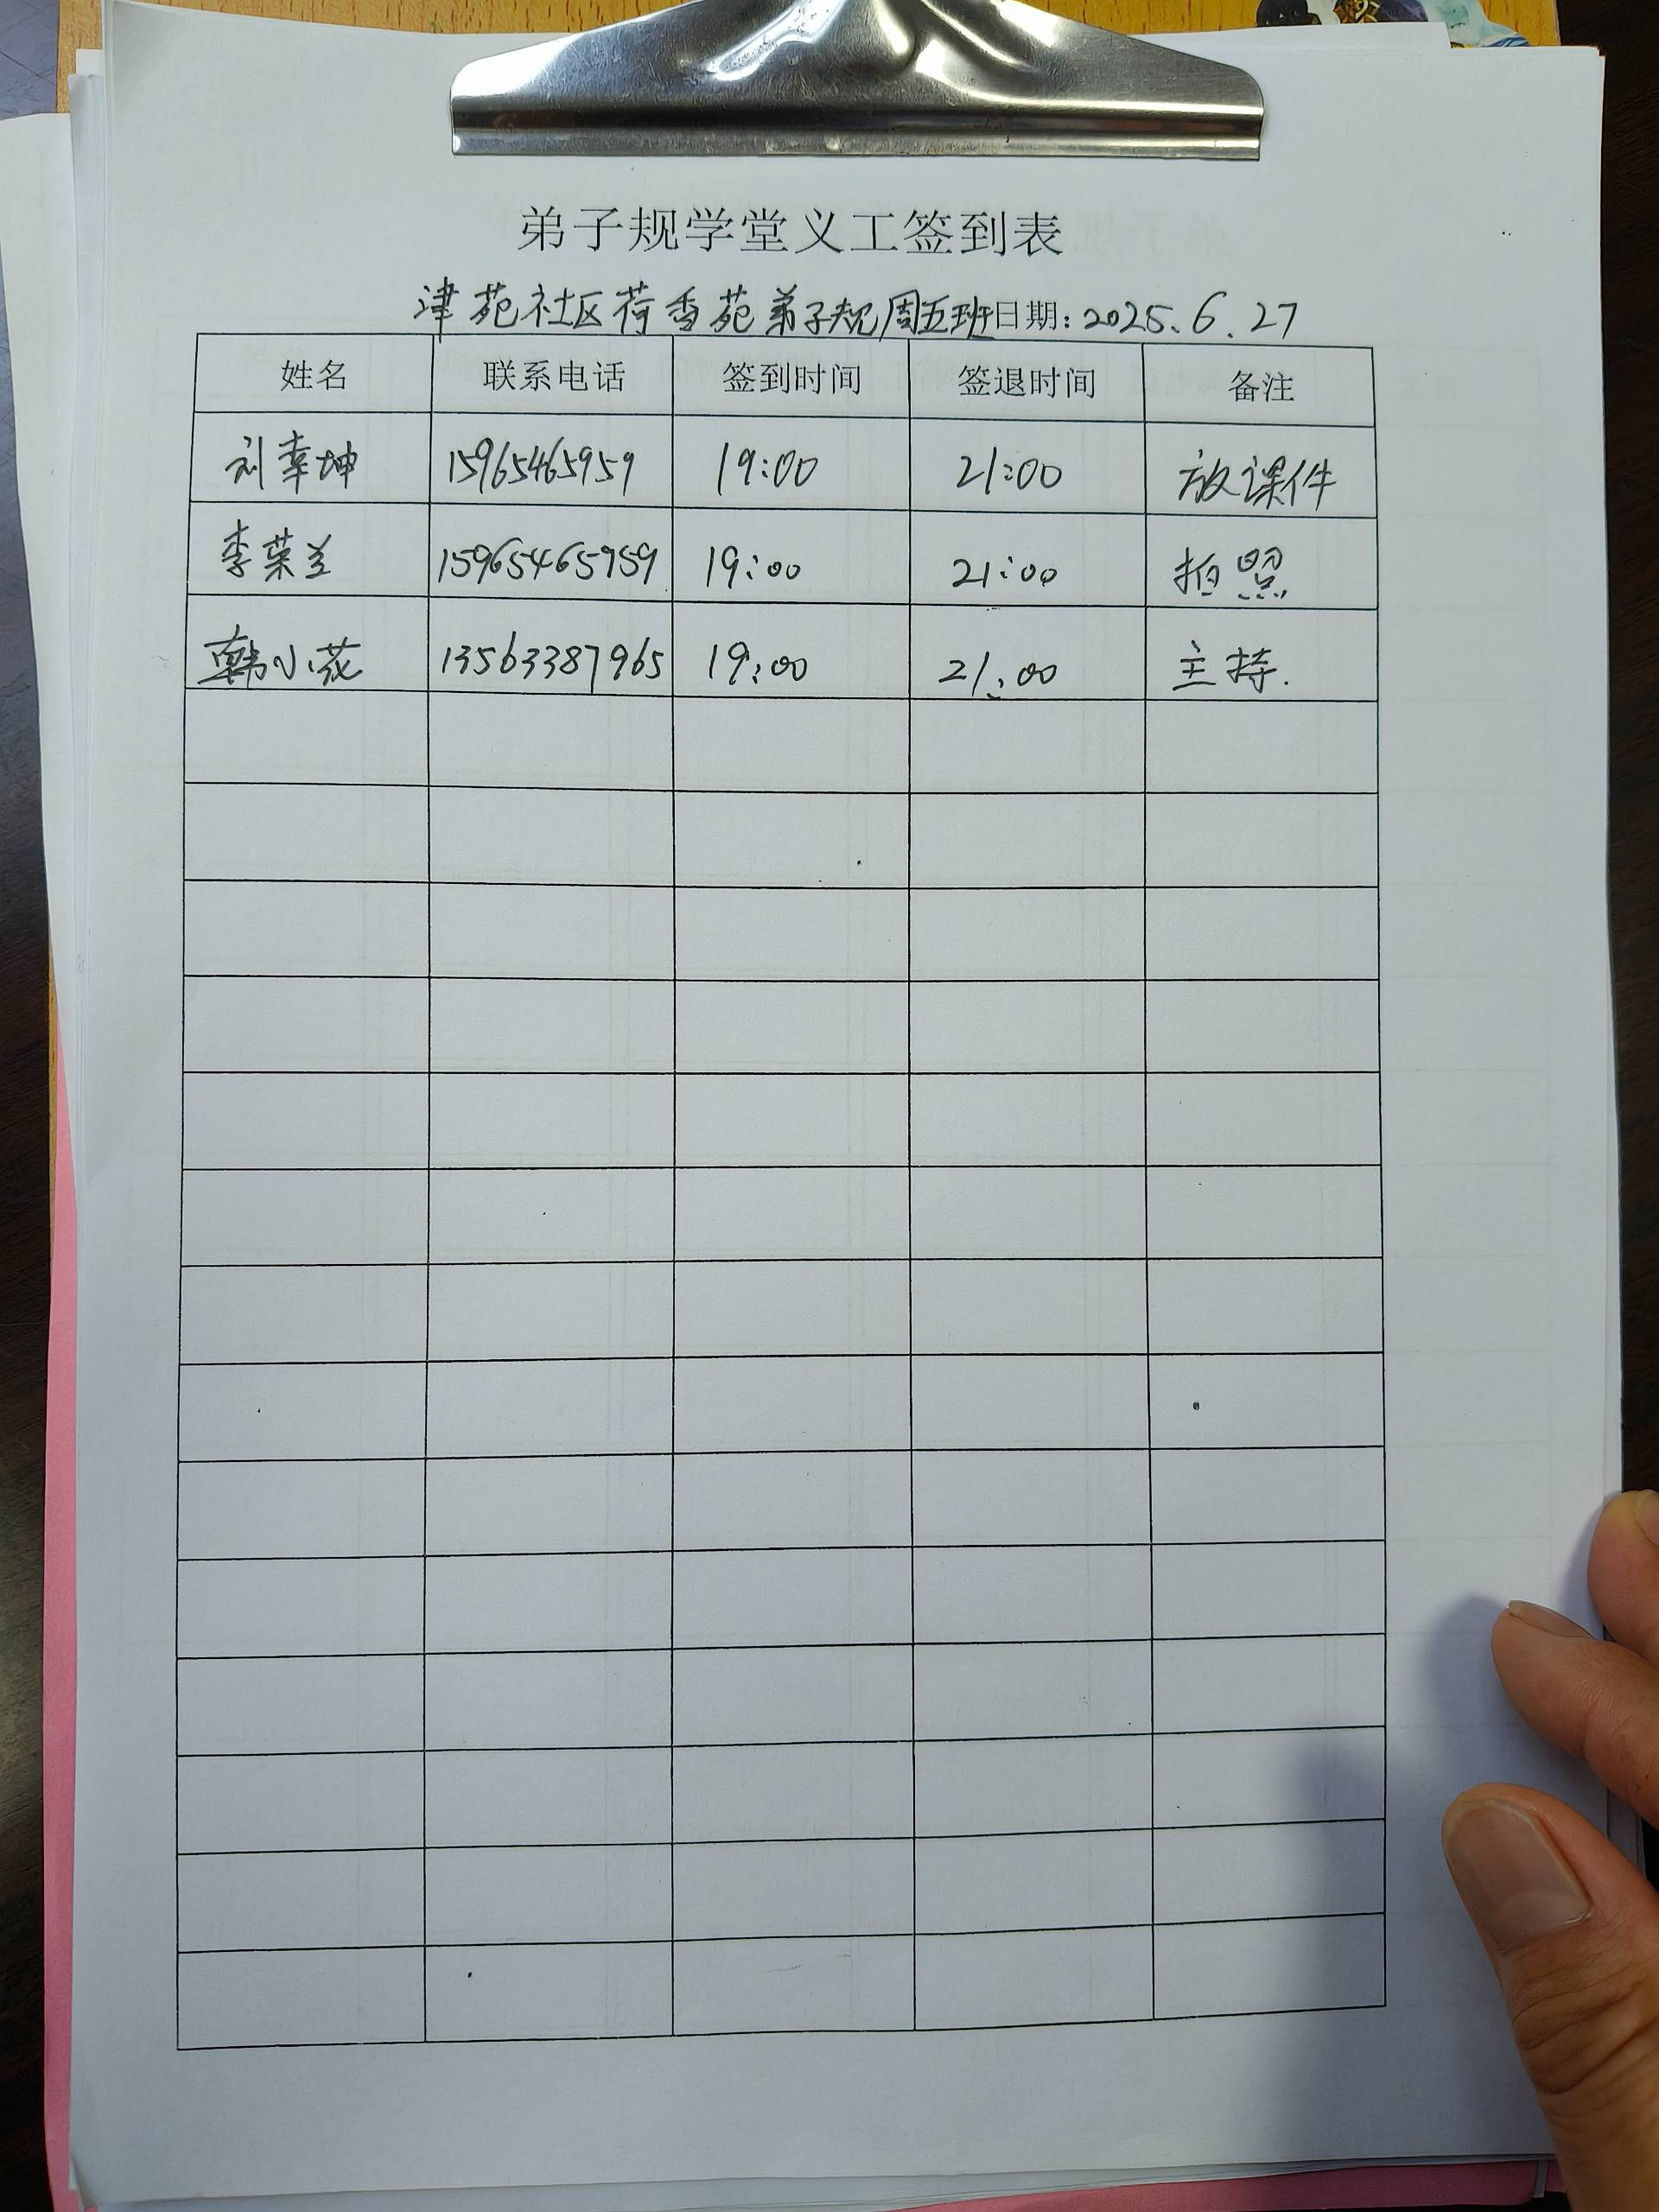 弟子规学堂义工签到表
津苑社区荷香苑弟子规周五班日期：2025.6.27
姓名 联系电话 签到时间 签退时间 备注
刘幸坤 15965465959 19:00 21:00 放课件
李荣兰 15965465959 19:00 21:00 拍照
韩小花 13563387965 19:00 21:00 主持.